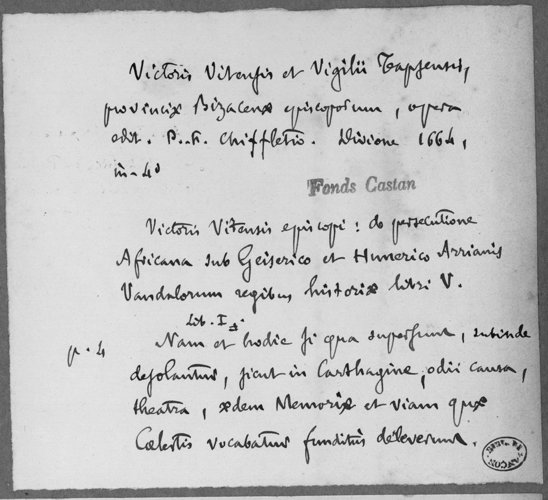 Victoris Vitensis et Vigilii Tapsensis,
provinciæ Bizacenæ episcoporum, opera
edit. P.-F. Chiffletio. Divione 1664,
in-4°
Fonds Castan
Victoris Vitensis episcopi: de persecutione
Africana sub Geiserico et Hunerico Arrianis
Vandalorum regibus historiæ libri V.
Lib. I
p. 4 Nam et hodie si qua supersunt, subinde
desolantur, sicut in Carthagine, odii causa,
theatra, ædem Memoriæ et viam quæ
Cœlestis vocabatur funditus deleverunt.